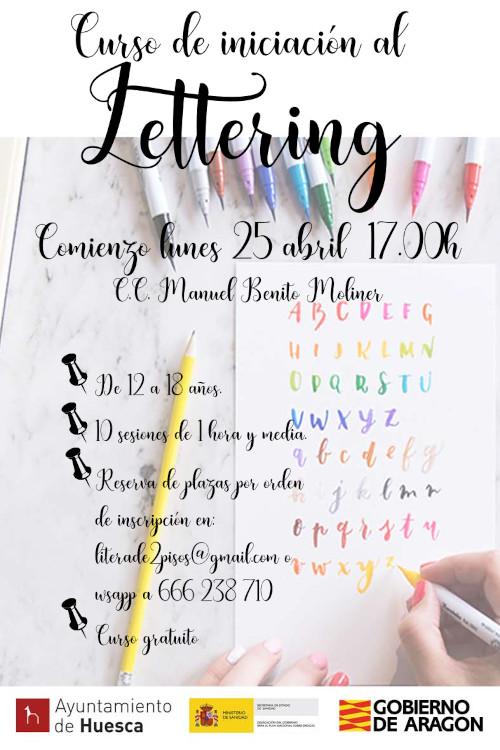 Curso de iniciación al
Lettering
Comienzo lunes 25 abril 17.00h
C.C. Manuel Benito Moliner
A B C D E F G
H I J K L M N
O P Q R S T U
V W X Y Z
a b c d e f g
h i j k l m n
o p q r s t u
v w x y z
De 12 a 18 años.
10 sesiones de 1 hora y media.
Reserva de plazas por orden
de inscripción en:
literade2pisos@gmail.com o
wsapp a 666 238 710
Curso gratuito
Ayuntamiento
de Huesca
MINISTERIO
DE SANIDAD
SECRETARÍA DE ESTADO
DE SANIDAD
DELEGACIÓN DEL GOBIERNO
PARA EL PLAN NACIONAL SOBRE DROGAS
GOBIERNO
DE ARAGON